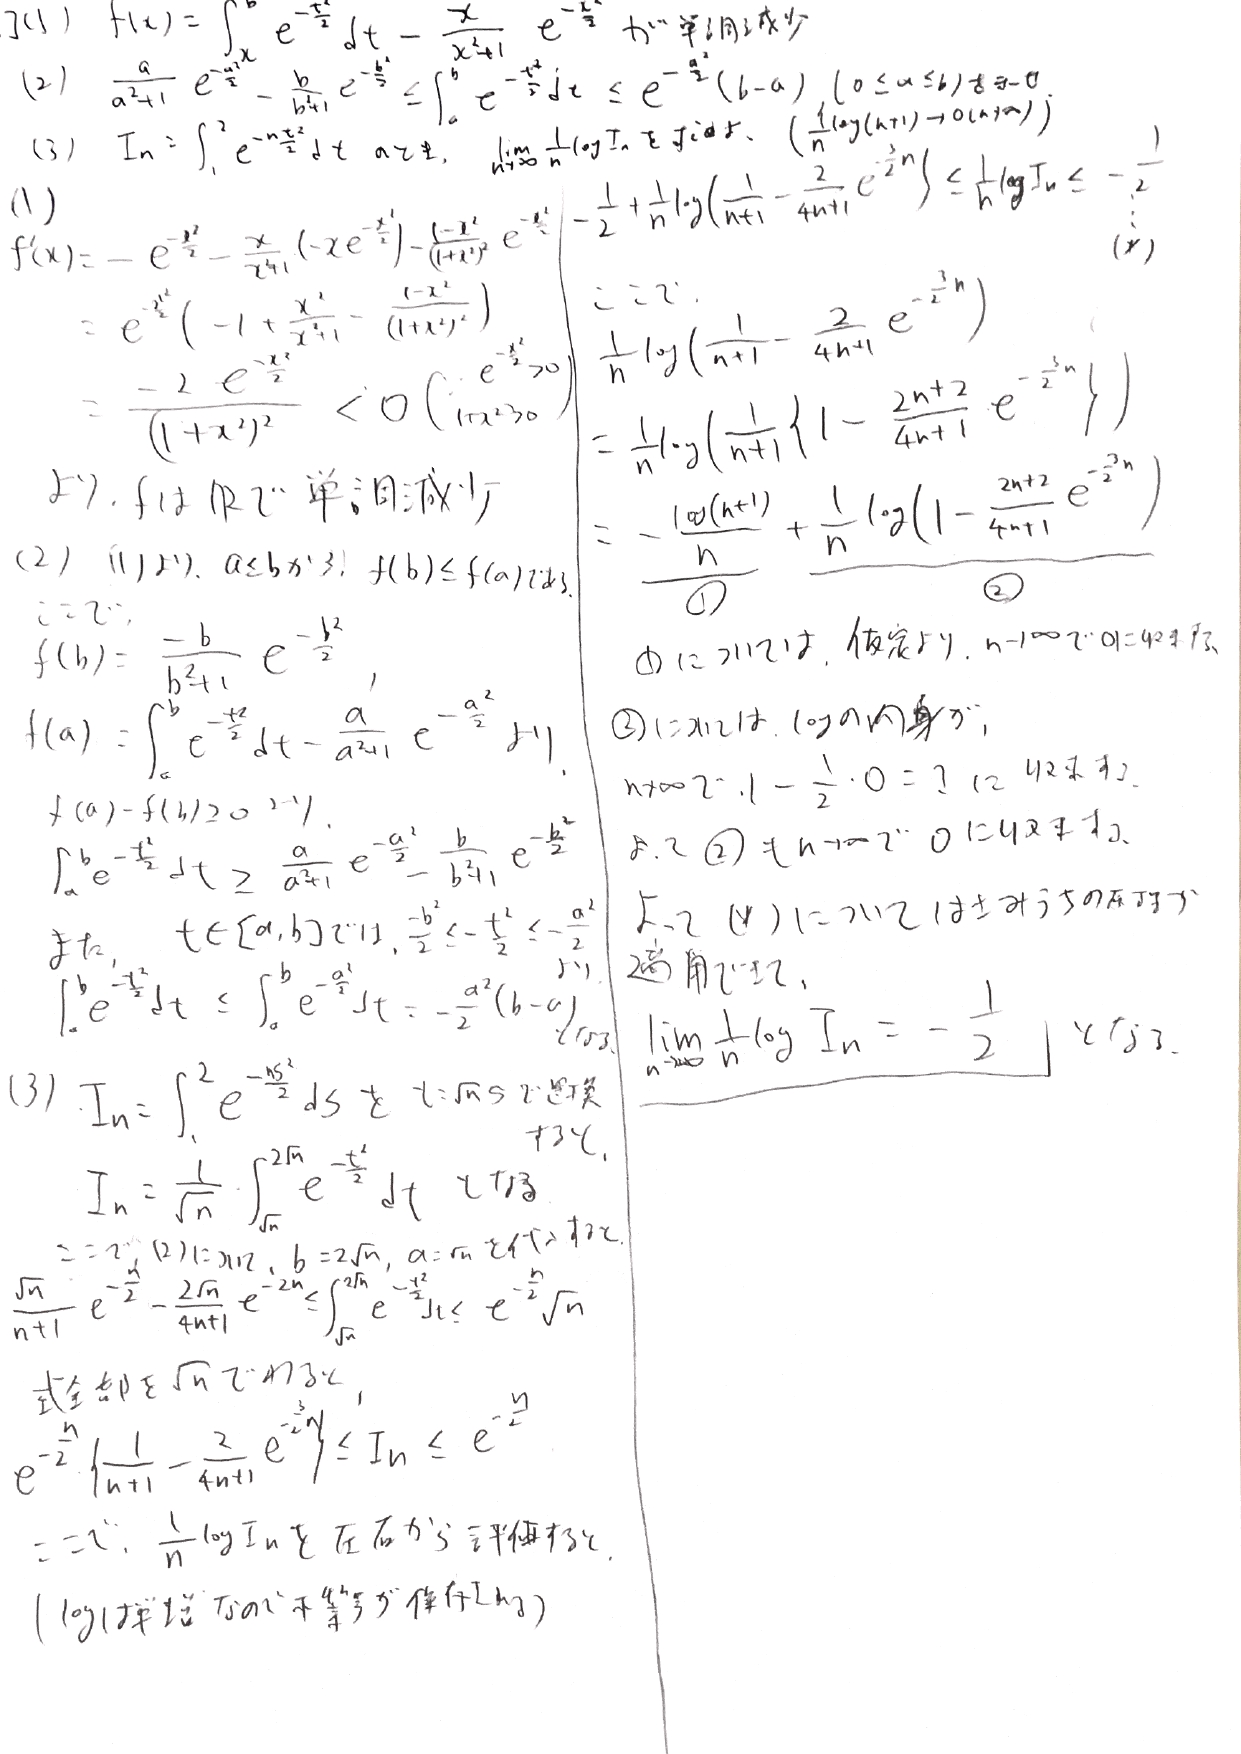 (1) f(x) = ∫_x^b e^{-t²/2} dt - x/(x²+1) e^{-x²/2} が単調減少
(2) a/(a²+1) e^{-a²/2} - b/(b²+1) e^{-b²/2} ≤ ∫_a^b e^{-t²/2} dt ≤ e^{-a²/2} (b-a) (0≤a≤b) を示せ
(3) I_n = ∫_1^2 e^{-nt²/2} dt のとき, lim_{n→∞} 1/n log I_n を求めよ. (1/n log(n+1) → 0 (n→∞))
(1)
f'(x) = -e^{-x²/2} - x/(x²+1) (-xe^{-x²/2}) - (1-x²)/(1+x²)² e^{-x²/2}
= e^{-x²/2} (-1 + x²/(x²+1) - (1-x²)/(1+x²)²)
= -2e^{-x²/2}/(1+x²)² < 0 (∵ e^{-x²/2}>0 1+x²>0)
より, fはRで単調減少
(2) (1)より, a≤bから, f(b)≤f(a)である.
ここで,
f(b) = -b/(b²+1) e^{-b²/2},
f(a) = ∫_a^b e^{-t²/2} dt - a/(a²+1) e^{-a²/2} より,
f(a)-f(b)≥0 より,
∫_a^b e^{-t²/2} dt ≥ a/(a²+1) e^{-a²/2} - b/(b²+1) e^{-b²/2}
また, t∈[a,b]では, -b²/2 ≤ -t²/2 ≤ -a²/2 より
∫_a^b e^{-t²/2} dt ≤ ∫_a^b e^{-a²/2} dt = -a²/2 (b-a) となる.
(3) I_n = ∫_1^2 e^{-ns²/2} ds を t=√n s で置換
すると,
I_n = 1/√n · ∫_{√n}^{2√n} e^{-t²/2} dt となる
ここで, (2)に対して, b=2√n, a=√n を代入すると
√n/(n+1) e^{-n/2} - 2√n/(4n+1) e^{-2n} ≤ ∫_{√n}^{2√n} e^{-t²/2} dt ≤ e^{-n/2} √n
式全部を√nでわると,
e^{-n/2} {1/(n+1) - 2/(4n+1) e^{-3/2 n}} ≤ I_n ≤ e^{-n/2}
ここで, 1/n log I_n を左右から評価すると,
(logは単増なので不等号が保存される)
-1/2 + 1/n log(1/(n+1) - 2/(4n+1) e^{-3/2 n}} ≤ 1/n log I_n ≤ -1/2
⋮
(*)
ここで,
1/n log(1/(n+1) - 2/(4n+1) e^{-3/2 n})
= 1/n log(1/(n+1) {1 - (2n+2)/(4n+1) e^{-3/2 n}})
= -log(n+1)/n + 1/n log(1 - (2n+2)/(4n+1) e^{-3/2 n})
① ②
①については, 仮定より, n→∞で0に収束する,
②に対しては, logの内身が,
n→∞で, 1 - 1/2 · 0 = 1 に収束する.
よって②もn→∞で 0に収束する.
よって (*)についてはさみうちの原理が
適用できて,
lim_{n→∞} 1/n log I_n = -1/2 となる.